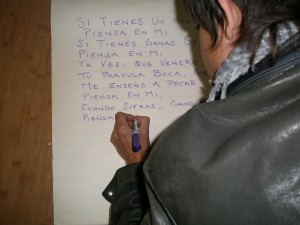 SI TIENES UN
PIENSA EN MI
SI TIENES GANAS DE
PIENSA EN MI.
YA VES, QUE VENERO
TU PARVULA BOCA,
ME ENSEÑO A PECAR
PIENSA EN MI.
CUANDO SUFRAS, CUANDO
PIENSA